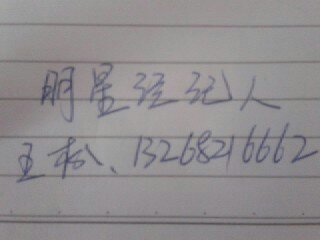 明星经纪人
王松、13268216662